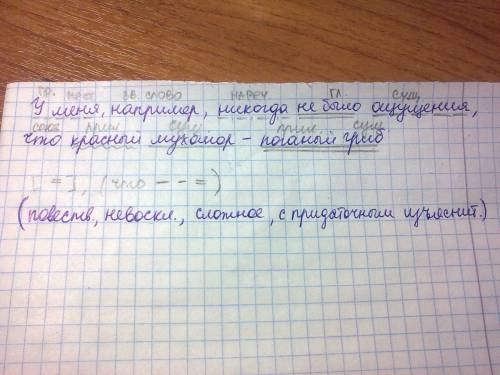 пр. мест. вв. слово нареч гл. сущ.
У меня, например, никогда не было ощущения,
союз прил. сущ. прил. сущ.
что красный мухомор – поганый гриб
[ = ], (что – – =)
(повеств, невоскл., сложное, с придаточным изъяснит.)